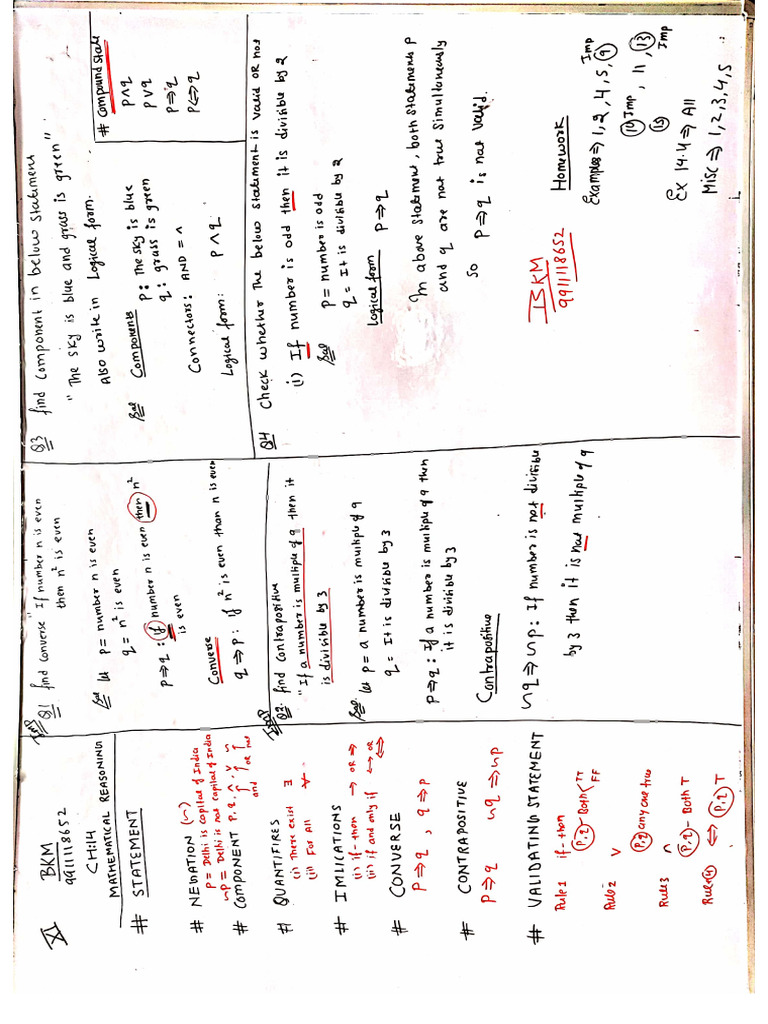 XI
BKM
9911118652
CH:14
MATHEMATICAL REASONING
# STATEMENT
# NEGATION (~)
P = Delhi is capital of India
~P = Delhi is not capital of India
# COMPONENT P, q, ∧, ∨, ~
and or not
# QUANTIFIRES
(i) There exist ∃
(ii) For All ∀
# IMLICATIONS
(i) if-then → OR ⇒
(ii) if and only if ↔ OR ⇔
# CONVERSE
P ⇒ q , q ⇒ P
# CONTRAPOSITIVE
P ⇒ q ~q ⇒ ~p
# VALIDATING STATEMENT
Rule 1 if-then
(P,q) Both TT
FF
Rule 2 ∨
P,q any one true
Rule 3 ∧
(P,q) - Both T
Rule(4) ⇔ (P,q) T
Imp
Q1 find converse "If number n is even
then n² is even
Sol let p = number n is even
q = n² is even
p⇒q : if number n is even then n²
is even
Converse
q⇒p : if n² is even than n is even
Imp
Q2. find contrapositive
"If a number is multiple of 9 then it
is divisible by 3
Sol. let p = a number is multiple of 9
q = It is divisible by 3
p⇒q : If a number is multiple of 9 then
it is divisible by 3
Contrapositive
~q ⇒ ~p : If number is not divisible
by 3 then it is not multiple of 9
Q3 find component in below statement
"The sky is blue and grass is green"
Also write in Logical form.
Sol Components p : The sky is blue
q : grass is green
Connectors : AND = ∧
Logical form : p ∧ q
# Compound State
P∧q
P∨q
P⇒q
P⇔q
Q4 Check whether the below statement is valid or not
(i) If number is odd then it is divisible by 2
Sol p = number is odd
q = It is divisible by 2
Logical form P ⇒ q
In above statement, both statements P
and q are not true simultaneously
so P ⇒ q is not valid.
BKM
9911118652
Homework
Examples ⇒ 1, 2, 4, 5, 9 Imp
Imp , 11, 13 Imp
Ex 14.4 ⇒ All
Misc ⇒ 1, 2, 3, 4, 5